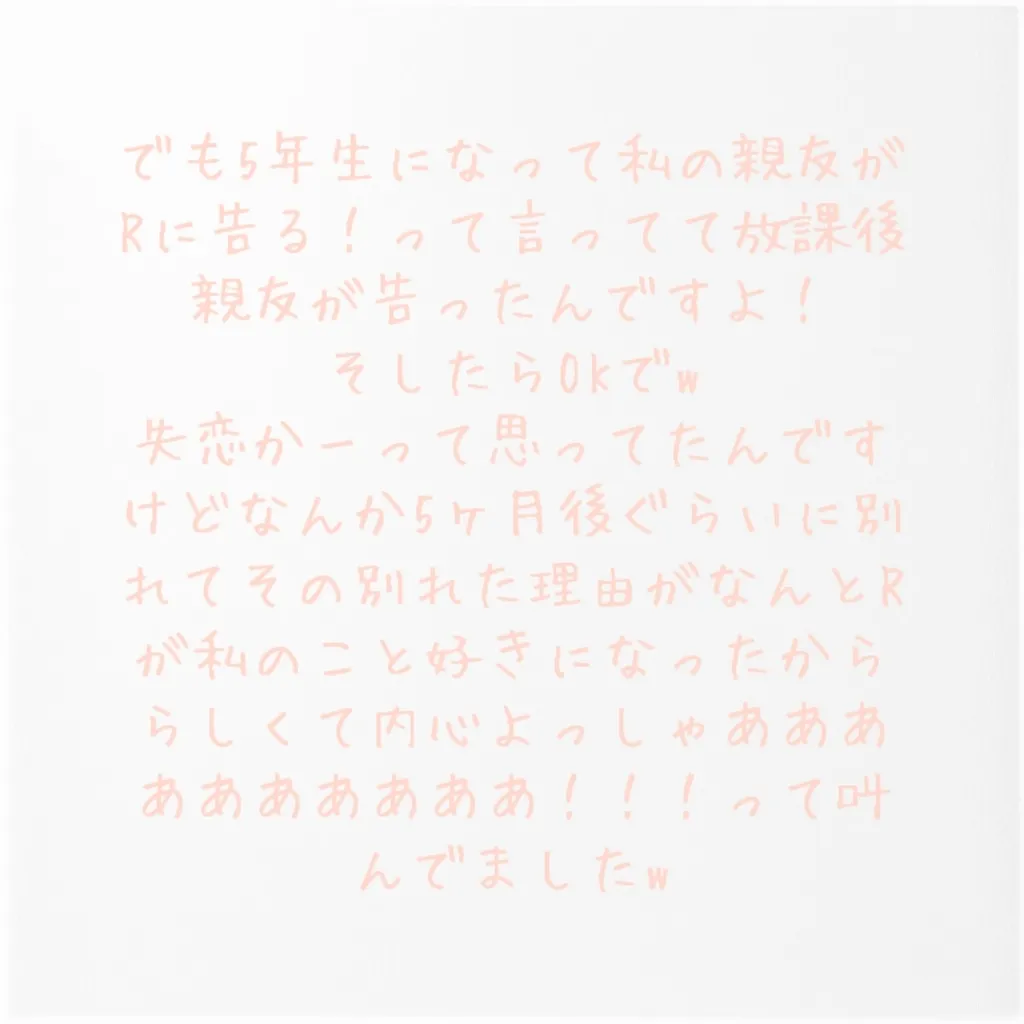 でも5年生になって私の親友が
Rに告る！って言ってて放課後
親友が告ったんですよ！
そしたらOkでw
失恋かーって思ってたんです
けどなんか5ヶ月後ぐらいに別
れてその別れた理由がなんとR
が私のこと好きになったから
らしくて内心よっしゃあああ
あああああああ！！！って叫
んでましたw